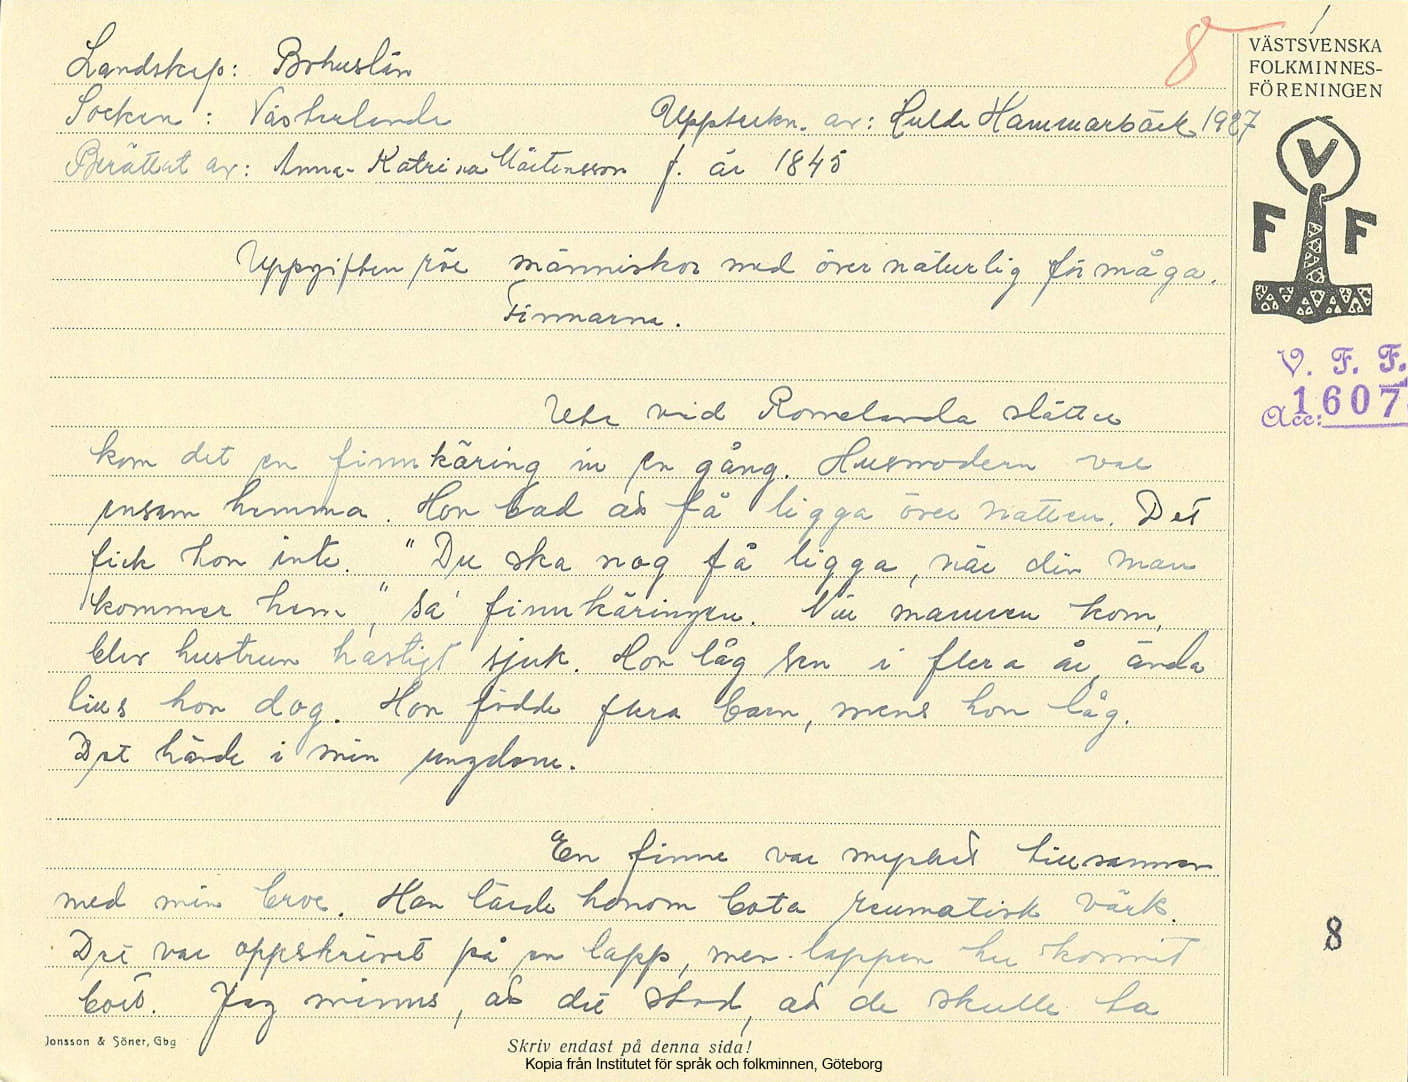 8
VÄSTSVENSKA
FOLKMINNES-
FÖRENINGEN
V
F F
V. F. F.
Acc: 1607
Landskap: Bohuslän
Socken: Västerlanda Uppteckn. av: Hulda Hammarbäck 1927
Berättat av: Anna-Katrina Mårtensson f. år 1845
Uppgiften rör människor med övernaturlig förmåga.
Finnarna.
Ute vid Romelanda slätten
kom det en finnkäring in en gång. Husmodern var
ensam hemma. Hon bad att få ligga över natten. Det
fick hon inte. "Du ska nog få ligga, när din man
kommer hem," sa' finnkäringen. När mannen kom,
blev hustrun hastigt sjuk. Hon låg sen i flera år, ända
tills hon dog. Hon födde flera barn, mens hon låg.
Det hände i min ungdom.
En finne var mycket tillsammen
med min bror. Han lärde honom bota reumatisk värk.
Det var oppskrivet på en lapp, men lappen har kommit
bort. Jag minns, att det stod, att de skulle ta
8
Jonsson & Söner, Gbg
Skriv endast på denna sida!
Kopia från Institutet för språk och folkminnen, Göteborg